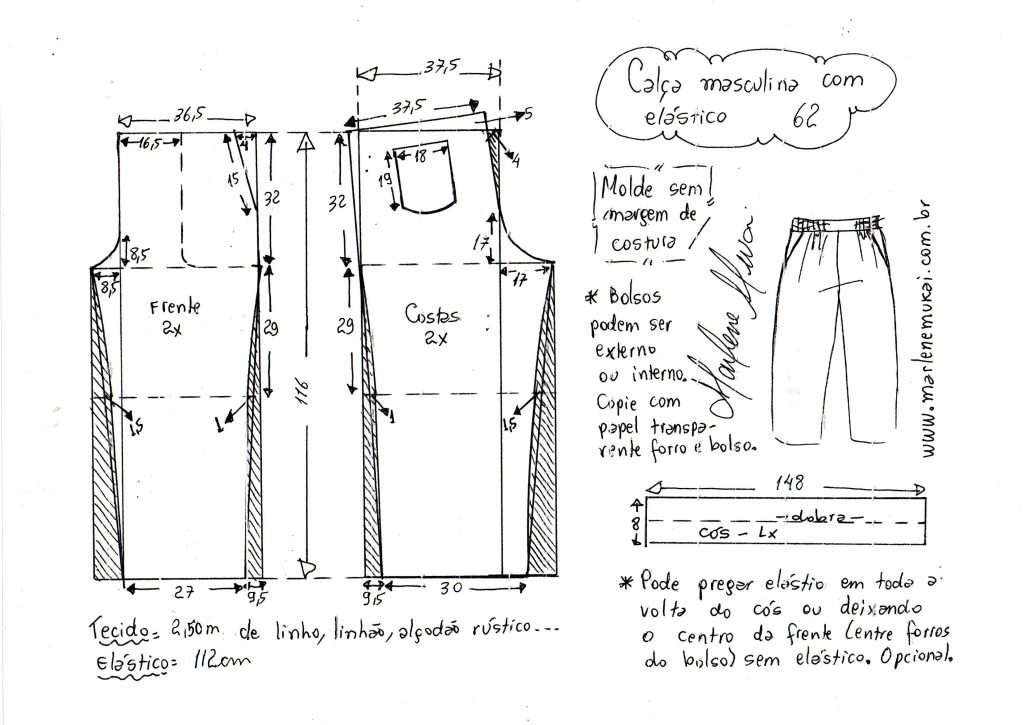 Calça masculina com
elástico 62
Molde sem
margem de
costura
Marlene Mukai
www.marlenemukai.com.br
* Bolsos
podem ser
externo
ou interno.
Copie com
papel transpa-
rente forro e bolso.
36,5
16,5
4
15
32
8,5
8,5
Frente
2x
29
1,5
1
27
9,5
116
37,5
37,5
5
18
19
4
32
17
17
Costas
2x
29
1
1,5
9,5
30
148
8
dobra
cós - 1x
Tecido= 2,50m de linho, linhão, algodão rústico...
Elástico= 112cm
* Pode pregar elástio em toda a
volta do cós ou deixando
o centro da frente (entre forros
do bolso) sem elástico. Opcional.